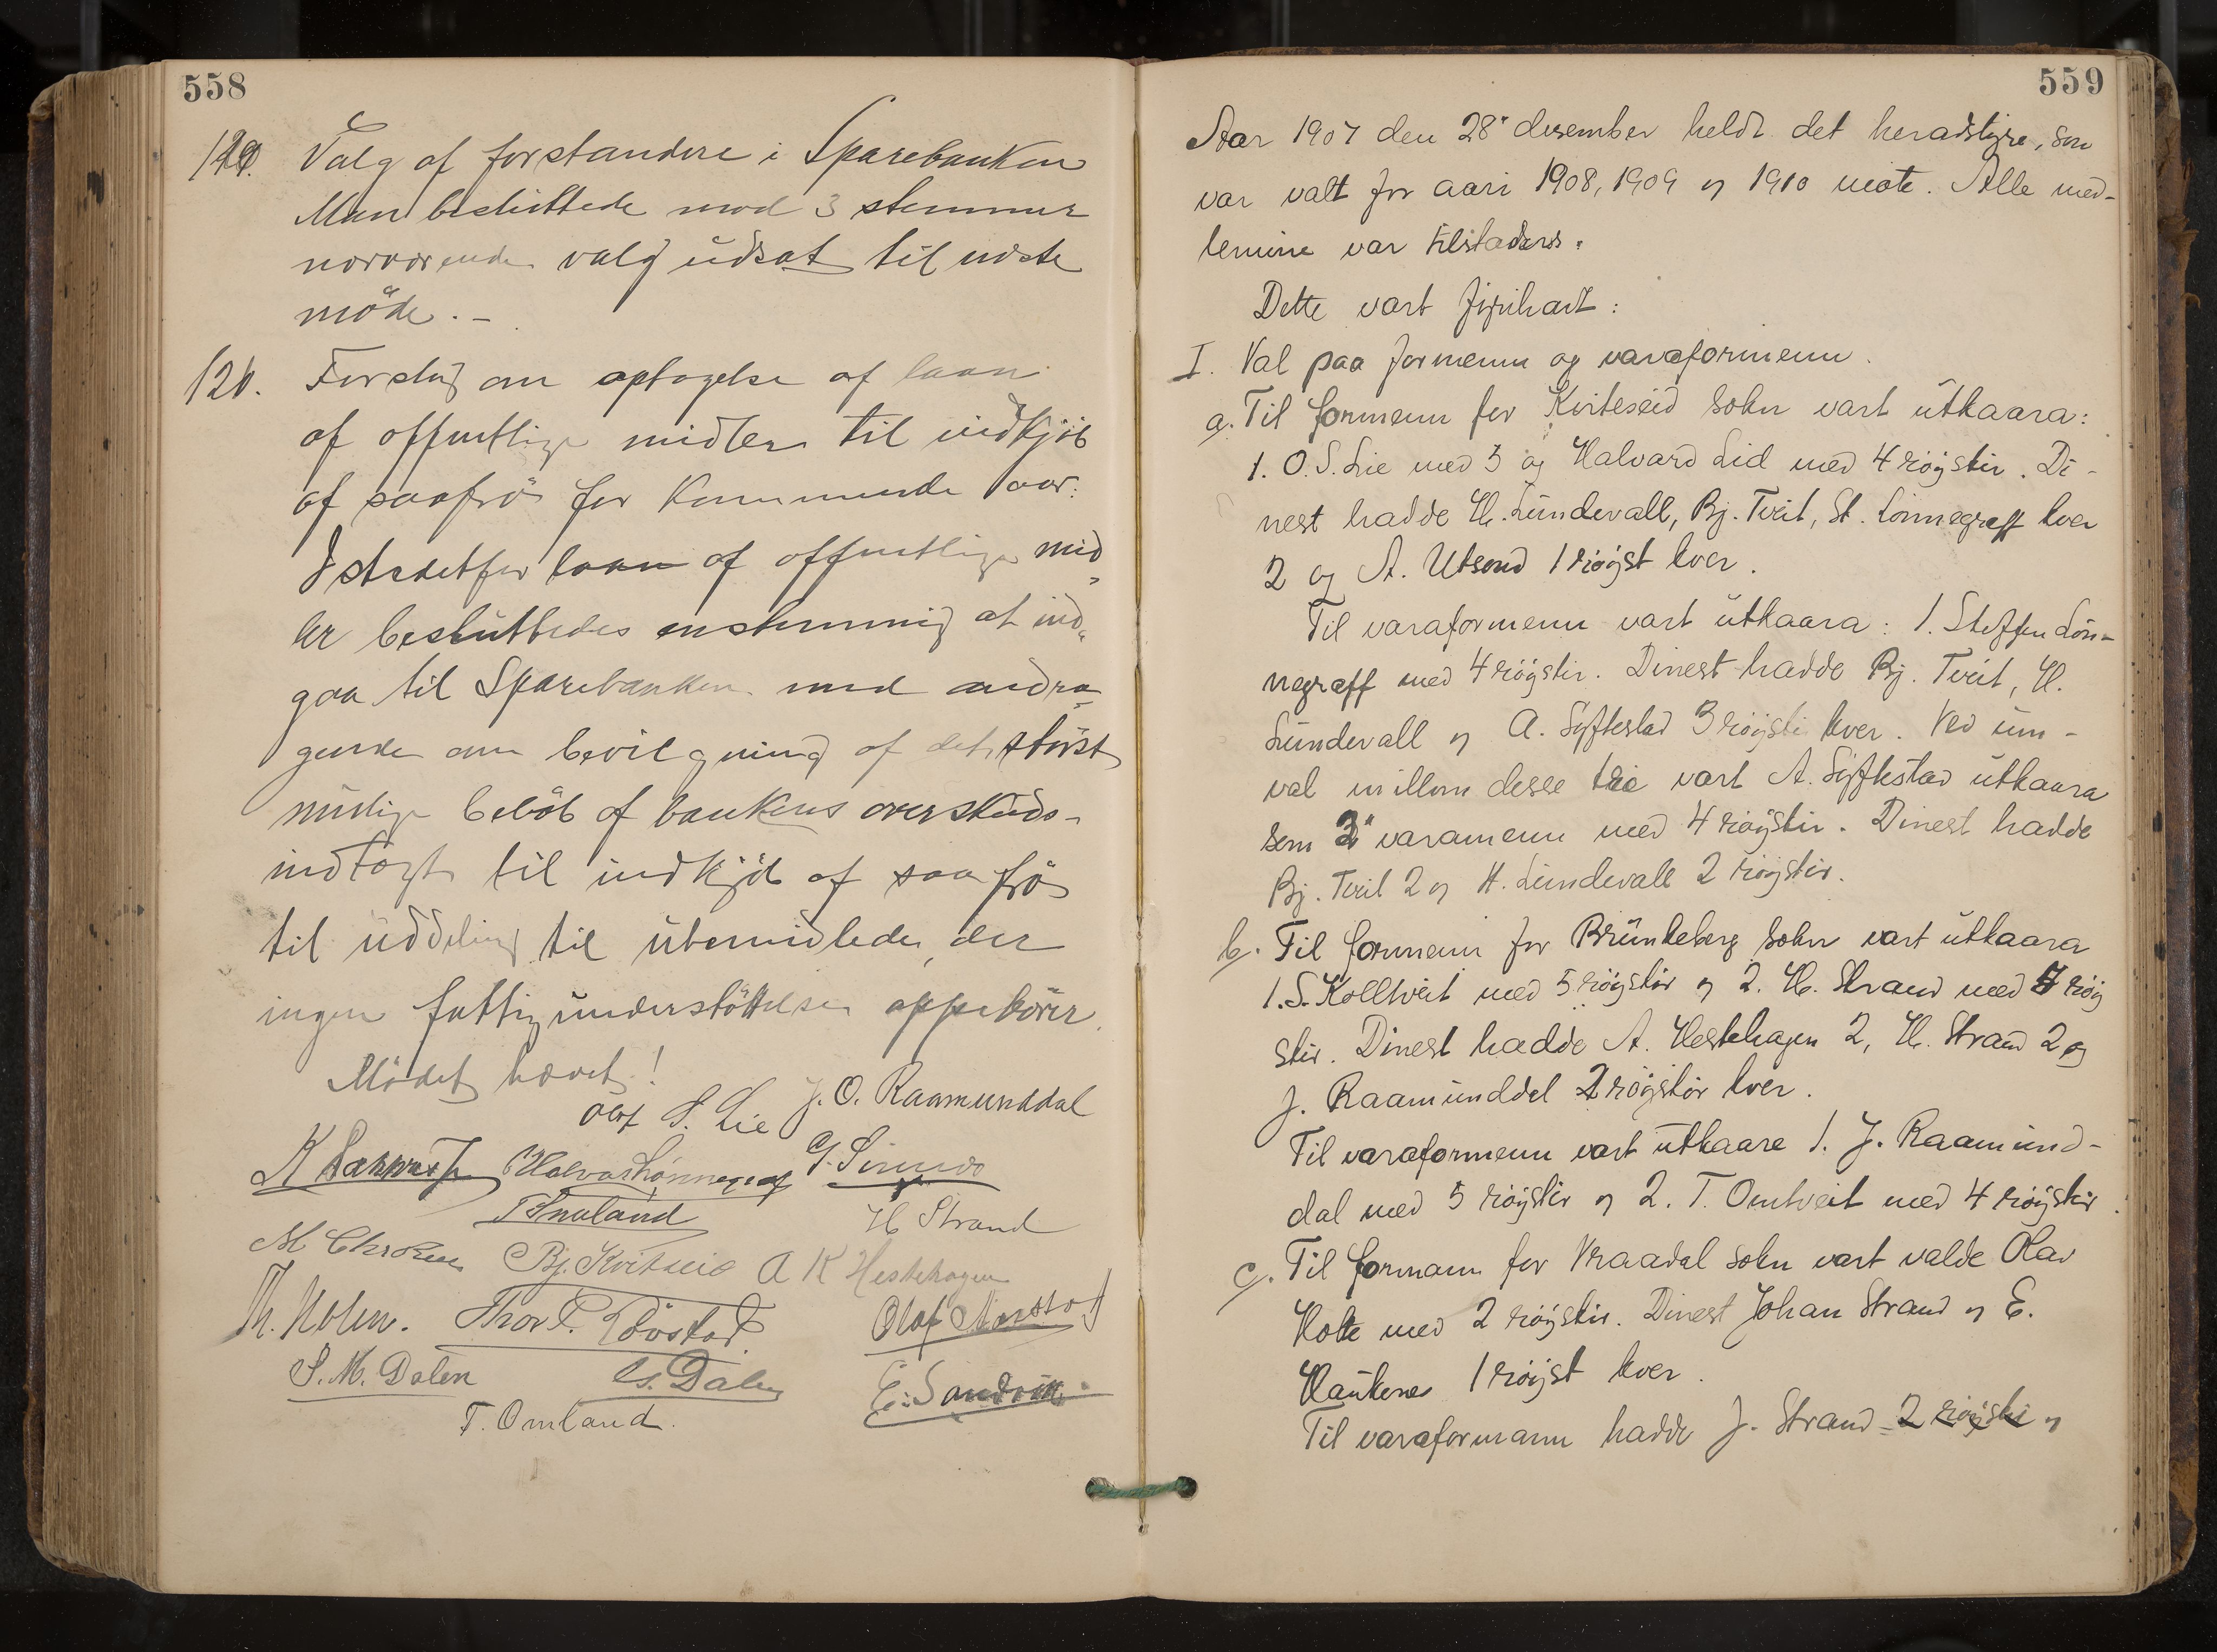 558
120. Valg af forstandere i Sparebanken
Man besluttede mod 3 stemmer
nærværende valg udsat til næste
møde. -
121. Forslag om optagelse af laan
af offentlige midler til indkjøb
af saafrø for kommende aar:
Istedetfor laan af offentlige mid-
ler besluttedes enstemmig at ind-
gaa til Sparebanken med andra-
gende om bevilgning af det størst
mulige beløb af bankens overskuds-
indtægt til indkjøb af saafrø
til uddeling til ubemidlede, der
ingen fattigunderstøttelse oppebærer.
Mødet hævet!
Olaf S. Lie J. O. Raamunddal
Halvor Lønnegraf
H Strand
Bj. Kvitseid A K Hestehagen
Th. Moen. Thor T.
S. M. Dalen G. Dalen E. Sandvik.
T. Omland.
559
Aar 1907 den 28' desember heldt det heradstyre, som
var valt for aari 1908, 1909 og 1910 møte. Alle med-
lemine var tilstades.
Dette vart fyrihavt:
I. Val paa formenn og varaformenn.
a. Til formenn for Kviteseid sokn vart utkaara:
1. O. S. Lie med 5 og Halvard Lid med 4 røyster. Di-
nest hadde H. Lundevall, Bj. Tveit, St. Lønnegraff kver
2 og A. Utsond 1 røyst kver.
Til varaformenn vart utkaara: 1. Steffen Løn-
negraff med 4 røyster. Dinest hadde Bj. Tveit, H.
Lundevall og A. Syftestad 3 røyste kver. Ved um-
val millom desse trie vart A. Syftestad utkaara
som 2' varamenn med 4 røyster. Dinest hadde
Bj. Tveit 2 og H. Lundevall 2 røyster.
b. Til formenn for Brunkeberg sokn vart utkaara
1. S. Kolltveit med 5 røyster og 2. H. Strand med 4 røy
ster. Dinest hadde A. Hestehagen 2, H. Strand 2 og
J. Raamunddal 2 røyster kver.
Til varaformenn vart utkaare 1. J. Raamund-
dal med 5 røyster og 2. T. Omtveit med 4 røyster.
c. Til formann for Vraadal sokn vart valde Olav
Holte med 2 røyster. Dinest Johan Strand og E.
Haukenes 1 røyst kver.
Til varaformann hadde J. Strand 2 røyster og